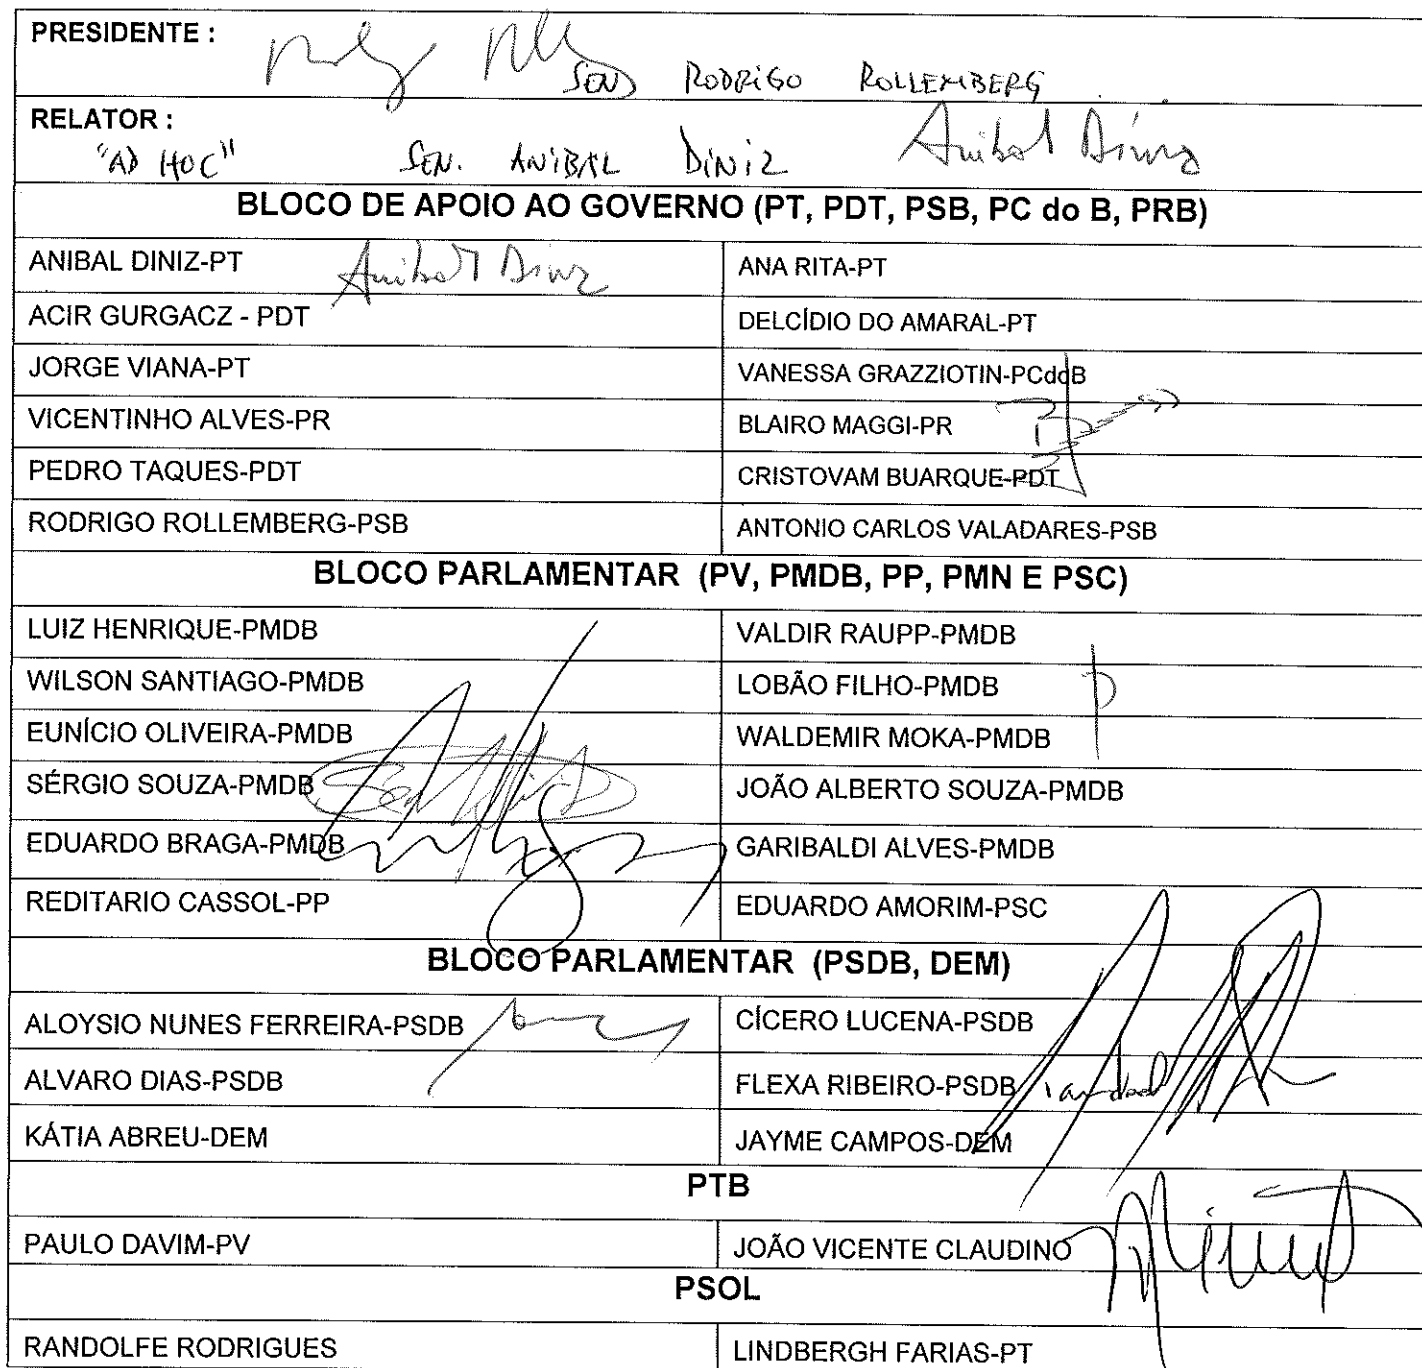 PRESIDENTE :
SEN RODRIGO ROLLEMBERG
RELATOR :
"AD HOC" SEN. ANIBAL DINIZ Anibal Diniz
BLOCO DE APOIO AO GOVERNO (PT, PDT, PSB, PC do B, PRB)
ANIBAL DINIZ-PT Anibal Diniz
ANA RITA-PT
ACIR GURGACZ - PDT
DELCÍDIO DO AMARAL-PT
JORGE VIANA-PT
VANESSA GRAZZIOTIN-PCdoB
VICENTINHO ALVES-PR
BLAIRO MAGGI-PR
PEDRO TAQUES-PDT
CRISTOVAM BUARQUE-PDT
RODRIGO ROLLEMBERG-PSB
ANTONIO CARLOS VALADARES-PSB
BLOCO PARLAMENTAR (PV, PMDB, PP, PMN E PSC)
LUIZ HENRIQUE-PMDB
VALDIR RAUPP-PMDB
WILSON SANTIAGO-PMDB
LOBÃO FILHO-PMDB
EUNÍCIO OLIVEIRA-PMDB
WALDEMIR MOKA-PMDB
SÉRGIO SOUZA-PMDB
JOÃO ALBERTO SOUZA-PMDB
EDUARDO BRAGA-PMDB
GARIBALDI ALVES-PMDB
REDITARIO CASSOL-PP
EDUARDO AMORIM-PSC
BLOCO PARLAMENTAR (PSDB, DEM)
ALOYSIO NUNES FERREIRA-PSDB
CÍCERO LUCENA-PSDB
ALVARO DIAS-PSDB
FLEXA RIBEIRO-PSDB
KÁTIA ABREU-DEM
JAYME CAMPOS-DEM
PTB
PAULO DAVIM-PV
JOÃO VICENTE CLAUDINO
PSOL
RANDOLFE RODRIGUES
LINDBERGH FARIAS-PT